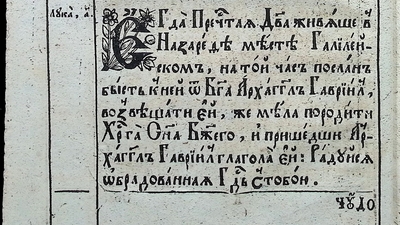 Лука̀, а҃.
ЄГда̀ Прⷱ҇таѧ Дв҃а живѧ́ше в̾
Назаре́дѣ мѣ́стѣ Галїле́й-
скомъ, на то́й часъ посла́н
бы́сть к̾не́й ѿ Бг҃а Арха́гг҃лъ Гаврїи́л,
возвѣща́ти є҆́й, же мѣ́ла породи́ти
Хрⷭ҇та Сн҃а Бж҃его, и҆ прише́дши Ар-
ха́гг҃лъ Гаврїи́л глаго́ла є҆́й: Ра́дуисѧ
ѡ҆бра́дованнаѧ Гдⷭ҇ь с̾тобо́и.
чꙋ́до